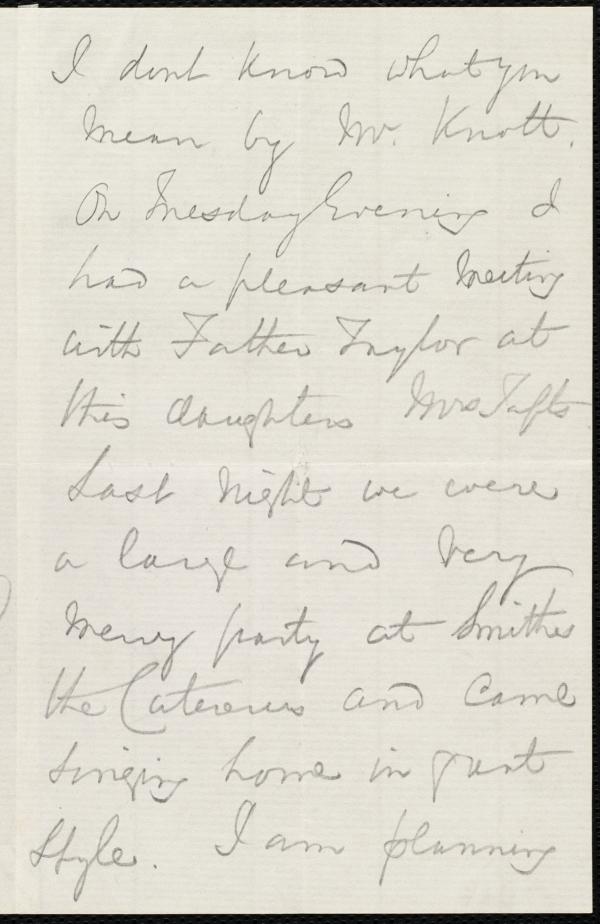 I dont know what you
mean by Mr. Knott.
On Tuesday Evening I
had a pleasant meeting
with Father Taylor at
this daughters Mrs Tafts
Last night we were
a large and very
merry party at Smiths
the Caterers and came
singing home in great
style. I am planning